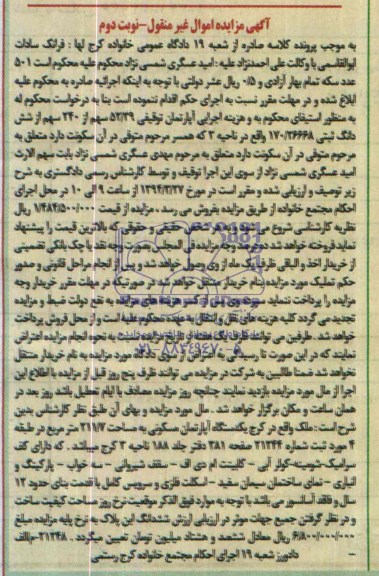 آگهی مزایده اموال غیر منقول-نوبت دوم
به موجب پرونده کلاسه صادره از شعبه ۱۹ دادگاه عمومی خانواده کرج لها : فرانک سادات
ابوالقاسمی با وکالت علی احمدنژاد علیه : امید عسگری شمسی نژاد محکوم علیه محکوم است ۵۰۱
عدد سکه تمام بهار آزادی و ۰/۵ ریال عشر دولتی با توجه به اینکه اجرائیه صادره به محکوم علیه
ابلاغ شده و در مهلت مقرر نسبت به اجرای حکم اقدام ننموده است بنا به درخواست محکوم له
به منظور استیفای محکوم به و هزینه اجرایی آپارتمان توقیفی ۵۲/۳۹ سهم از ۲۴۰ سهم از شش
دانگ ثبتی ۱۷۰/۲۶۶۶۸ واقع در ناحیه ۳ که همسر مرحوم متوفی در آن سکونت دارد متعلق به
مرحوم متوفی در آن سکونت دارد متعلق به مرحوم مهدی عسگری شمسی نژاد بابت سهم الارث
امید عسگری شمسی نژاد از سوی این اجرا توقیف و توسط کارشناس رسمی دادگستری به شرح
زیر توصیف و ارزیابی شده و مقرر است در مورخ ۱۳۹۴/۲/۲۷ از ساعت ۹ الی ۱۰ در محل اجرای
احکام مجتمع خانواده از طریق مزایده بفروش می رسد . مزایده از قیمت ۱/۴۸۴/۵۰۰/۰۰۰ ریال
نظریه کارشناسی شروع می شود و به هر شخص حقیقی و حقوقی که بالاترین قیمت را پیشنهاد
نماید فروخته خواهد شد ده درصد وجه مزایده فی المجلس بصورت وجه نقد یا چک بانکی تضمینی
از خریدار اخذ و الباقی ظرف یک ماه از وی وصول خواهد شد و پس از انجام مراحل قانونی و صدور
حکم تملیک مورد مزایده بنام خریدار منتقل خواهد شد در صورتیکه در مهلت مقرر خریدار وجه
مزایده را پرداخت ننماید سپرده وی پس از کسر هزینه های مزایده به نفع دولت ضبط و مزایده
تجدید می گردد کلیه هزینه های نقل و انتقال به عهده محکوم علیه است و از محل فروش پرداخت
خواهد شد . طرفین می توانند ظرف یک هفته از تاریخ مزایده نسبت به نحوه انجام مزایده اعتراض
نمایند که در این صورت تا رسیدگی به اعتراض در دادگاه مورد مزایده به نام خریدار منتقل
نخواهد شد ضمنا طالبین به شرکت در مزایده می توانند ظرف پنج روز قبل از مزایده با اطلاع این
اجرا از مال مورد مزایده بازدید نمایند چنانچه روز مزایده مصادف با ایام تعطیل باشد روز بعد در
همان ساعت و مکان برگزار خواهد شد . مال مورد مزایده و بهای آن طبق نظر کارشناس بدین
شرح است : ملک واقع در کرج یکدستگاه آپارتمان مسکونی به مساحت ۲۱۱/۷ متر مربع در طبقه
۴ مورد ثبت شماره ۲۱۲۴۴ صفحه ۳۸۱ دفتر جلد ۱۸۸ ناحیه ۳ کرج میباشد . که دارای کف
سرامیک-شومینه-کولر آبی - کابینت ام دی اف - سقف شیروانی - سه خواب - پارکینگ و
انباری - نمای ساختمان سیمان سفید - اسکلت فلزی و سرویس کامل با قدمت بنای حدود ۱۲
سال و فاقد آسانسور می باشد با توجه به موارد فوق الذکر موقعیت نرخ روز مساحت کیفیت ساخت
و در نظر گرفتن جمیع جهات موثر در ارزیابی ارزش ششدانگ این پلاک به نرخ پایه مزایده مبلغ
۶/۸۰۰/۰۰۰/۰۰۰ ریال معادل ششصد و هشتاد میلیون تومان تعیین میگردد . ۲۱۲۴۸-م/الف
دادورز شعبه ۱۹ اجرای احکام مجتمع خانواده کرج رستمی